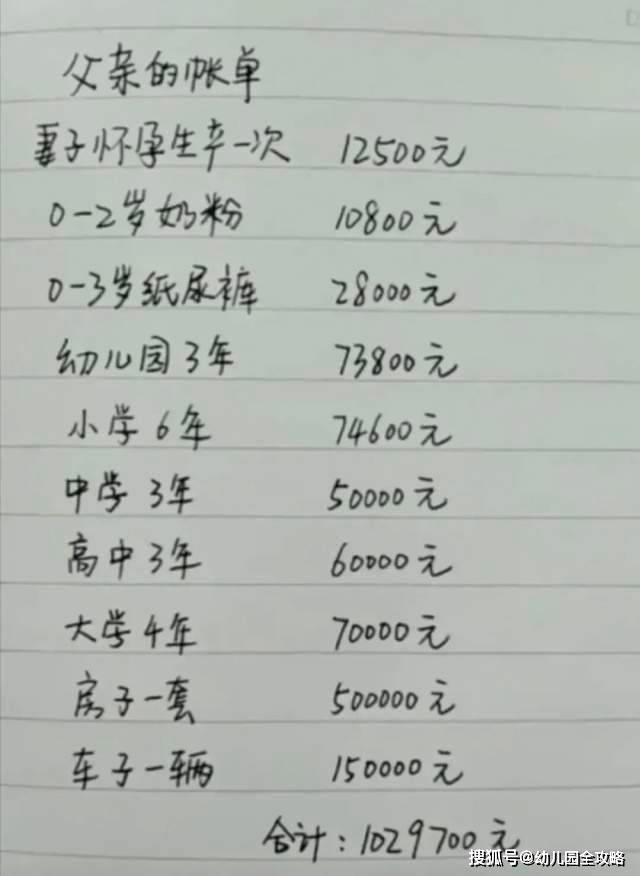 父亲的帐单
妻子怀孕生产一次 12500元
0-2岁奶粉 10800元
0-3岁纸尿裤 28000元
幼儿园3年 73800元
小学6年 74600元
中学3年 50000元
高中3年 60000元
大学4年 70000元
房子一套 500000元
车子一辆 150000元
合计:1029700元
搜狐号@幼儿园全攻略